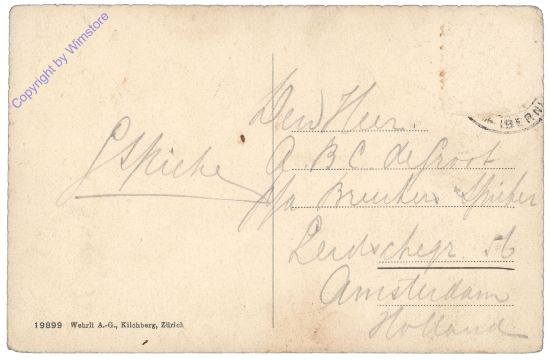 Copyright by Wimstore
(BERN)
G Spieke
Den Heer
A. B. C. de Groot
p/a Breukers Spieker
Leidschegr. 56
Amsterdam
Holland
19899 Wehrli A.-G., Kilchberg, Zürich